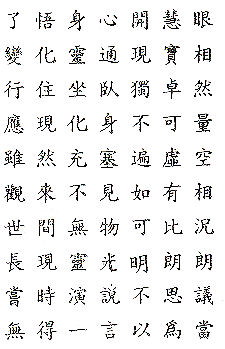 了悟身心開慧眼
變化靈通現寶相
行住坐臥獨卓然
應現化身不可量
雖然充塞遍虛空
觀來不見如有相
世間無物可比況
長現靈光明朗朗
嘗時演說不思議
無得一言以為當